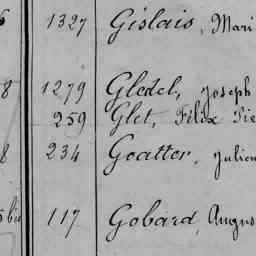 1327 Gislais, Mari
8 1279 Gledel, Joseph
259 Glet, Félix Pie
8 234 Goatter, Julien
bis 117 Gobard, Augus